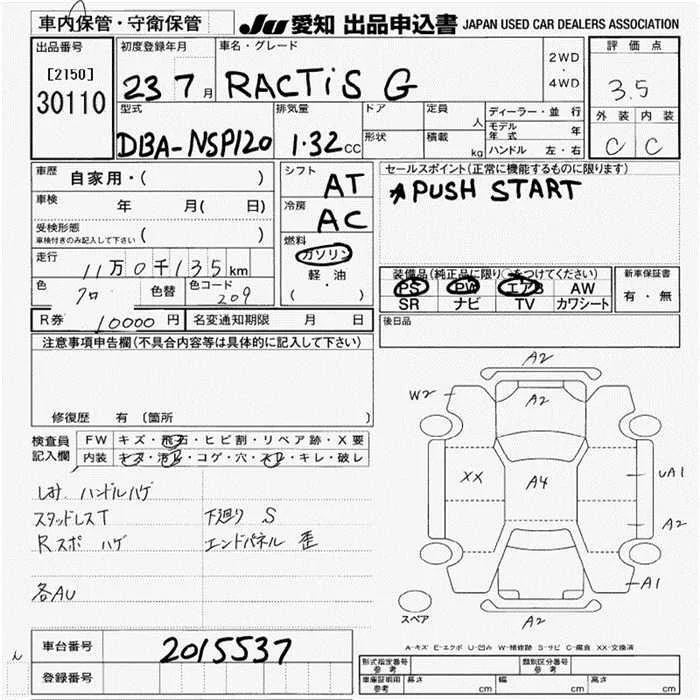 車内保管・守衛保管
JU 愛知 出品申込書 JAPAN USED CAR DEALERS ASSOCIATION
出品番号
[2150]
30110
初度登録年月
23 7 月
車名・グレード
RACTiS G
2WD
・
4WD
評価点
3.5
外装 内装
C C
型式
DBA-NSP120
排気量
1.32 CC
ドア
形状
定員 人
積載 kg
ディーラー・並行
モデル年式 年
ハンドル 左・右
車歴 自家用・( )
車検 年 月( 日)
受検形態
車検付きのみ記入して下さい ( )
走行 11万0千135km
色 クロ 色替 色コード 209
R券 10000 円 名変通知期限 月 日
シフト AT
冷房 AC
燃料
ガソリン
軽油
( ・ )
セールスポイント(正常に機能するものに限ります)
PUSH START
装備品(純正品に限り○をつけてください)
PS PW エアB AW
SR ナビ TV カワシート
新車保証書
有・無
後日品
注意事項申告欄(不具合内容等は具体的に記入して下さい)
修復歴 有 〔箇所 〕
検査員記入欄
FW キズ・飛石・ヒビ割・リペア跡・X要
内装 キズ・汚レ・コゲ・穴・スレ・キレ・破レ
ハンドルハゲ
スタッドレスT 下廻り S
Rスポ ハゲ エンドパネル 歪
各AU
A2
W2
A2
XX
A4
UA1
A2
A1
A2
スペア
A-キズ E-エクボ U-凹み W-補修跡 S-サビ C-腐食 XX-交換済
車台番号 2015537
登録番号
形式指定番号 参考
類別区分番号 参考
車庫証明用 参考 長さ cm 幅 cm 高さ cm